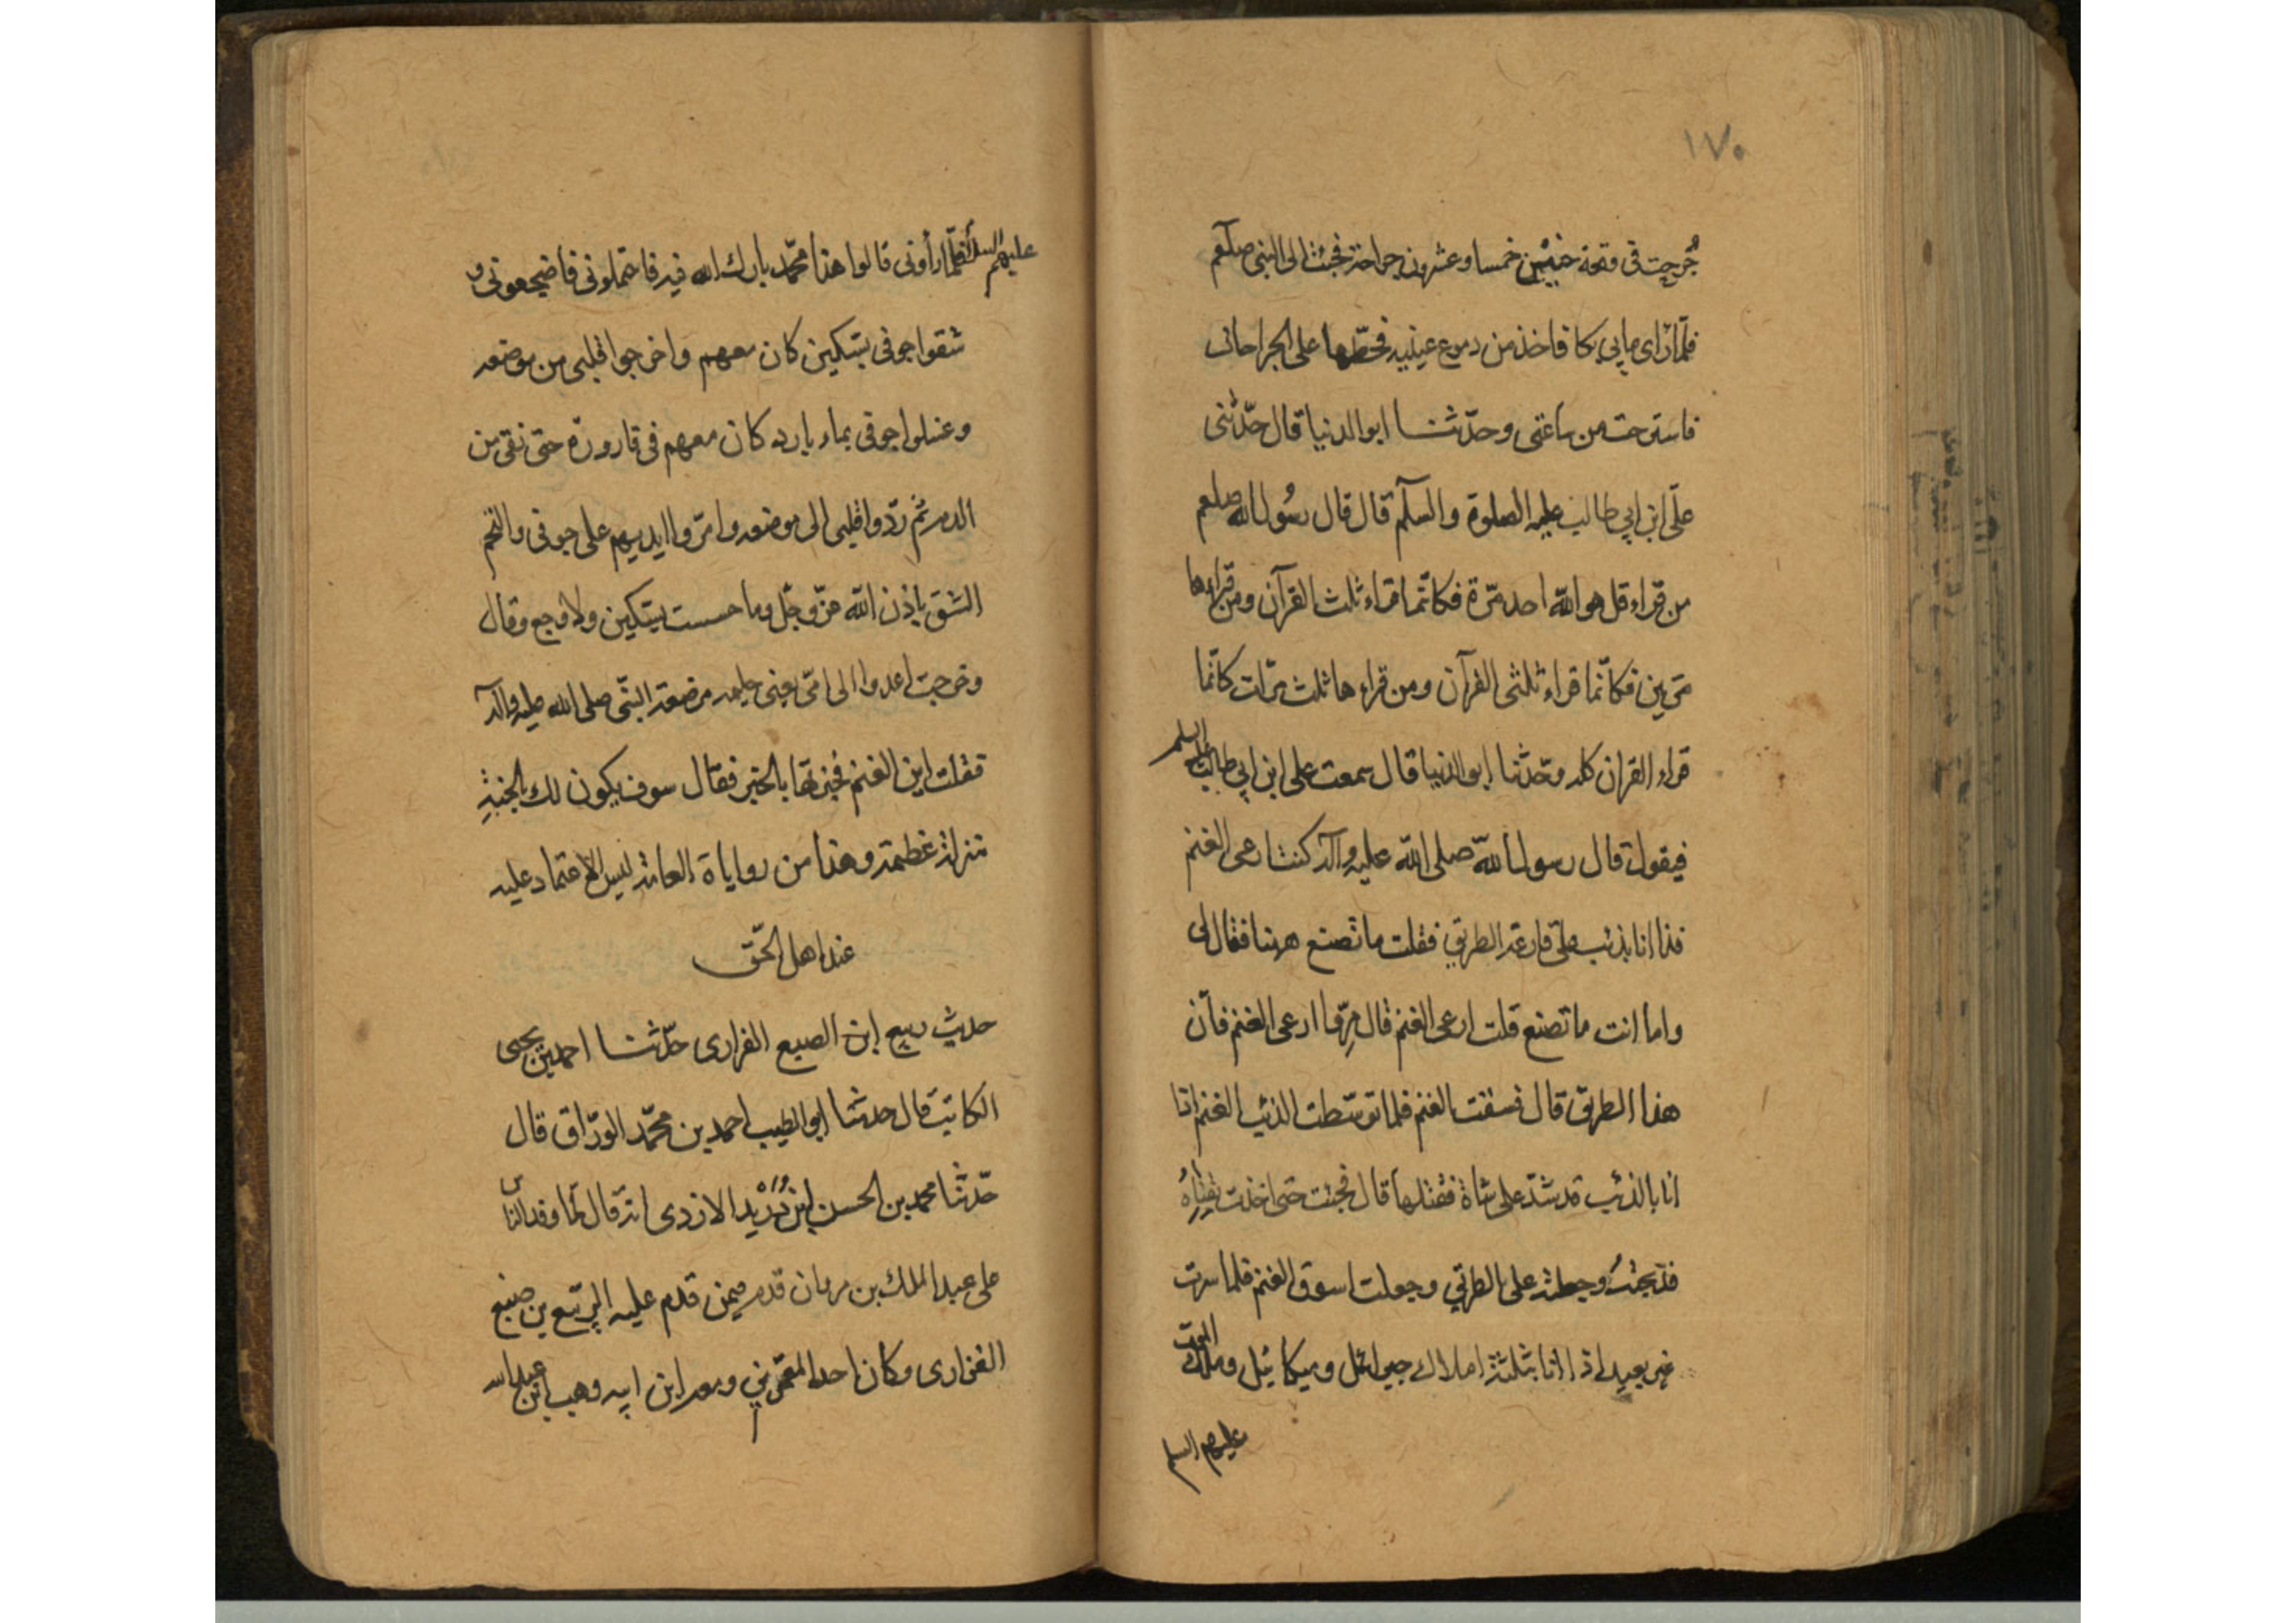 ١٧٥
جُرحت فى وقعة خيبر خمسا وعشرون جراحة فجئت الى النبى صلعم
فلمّا راى مابي بكا فاخذ من دموع عينيه فحطّها على الجراحات
فاسترحت من ساعتى وحدّثنا ابو الدنيا قال حدّثنى
علّى ابن ابي طالب عليه الصلوة والسلّم قال قال رسُول الله صلعم
من قراء قل هو الله احد مرّة فكانّما قراء ثلث القرآن ومن قراءها
مرّتين فكانّما قراء ثلثى القرآن ومن قراءها ثلث مرّات كانّما
قراء القران كله وحدّثنا ابو الدنيا قال سمعت على ابن ابي طالب عليه السلم
فيقول قال رسول الله صلى الله عليه وآله كنت ارعى الغنم
فذا انا بذئب على قارعة الطريق فقلت ما تصنع ههنا فقال لى
واما انت ما تصنع قلت ارعى الغنم قال مرّ ارعى الغنم فان
هذا الطريق قال فسقت الغنم فلما توسّطت الذئب الغنم اذا
انا بالذئب قد شدّ على شاة فقتلها قال فجئت حتى اخذت بقفاهُ
فذبحتُه وجعلته على الطريق وجعلت اسوق الغنم فلما سرت
غير بعيد اذا انا بثلثة املاك جبرائل وميكائيل وملك الموت
عليهم السلم
عليهم السلم فلمّا رأونى قالوا هذا محمّد بارك الله فيه فاحتملونى فاضجعونى و
شقوا جوفى بسكين كان معهم واخرجوا قلبى من موضعه
وغسلوا جوفى بماء بارد كان معهم فى قارورة حتى نقى من
الدم ثم ردّوا قلبى الى موضعه وامرّوا ايديهم على جوفى والتحم
الشق باذن الله عزّ وجل وما حسست بسكين ولا وجع وقال
وخرجت اعدوا الى امّى يعنى حليمه مرضعة النبّى صلى الله عليه وآله
فقلت اين الغنم فخبرتها بالخبر فقال سوف يكون لك بالجنّة
منزلة عظيمة وهذا من رواياة العامّة ليس الاعتماد عليه
عند اهل الحّق
حديث ربيع ابن الضبع الفزارى حدّثنا احمد بن يحيى
الكاتب قال حدثنا ابو الطيب احمد بن محمّد الورّاق قال
حدّثنا محمد بن الحسن ابن دُرَيْد الازدى انه قال لما وفد الناس
على عبد الملك بن مروان قدم فيمن قدم عليه الربيع بن ضبع
الفزارى وكان احد المعمّرين ومعه ابن ابيه وهب ابن عبد الله